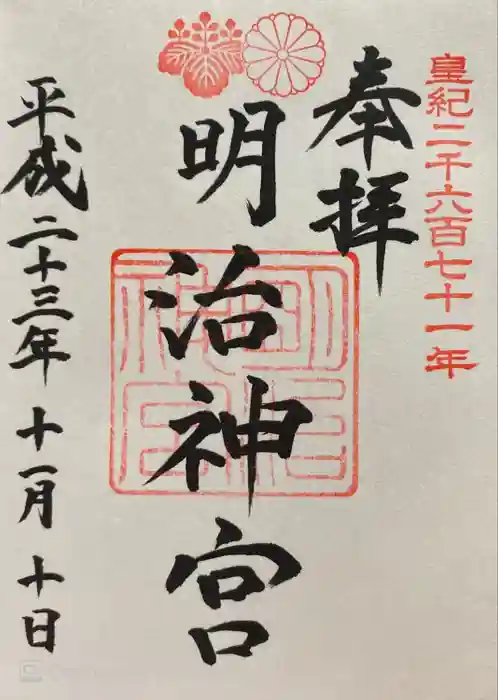 皇紀二千六百七十一年
奉拝
明治神宮
明治神宮
平成二十三年 十一月 十日